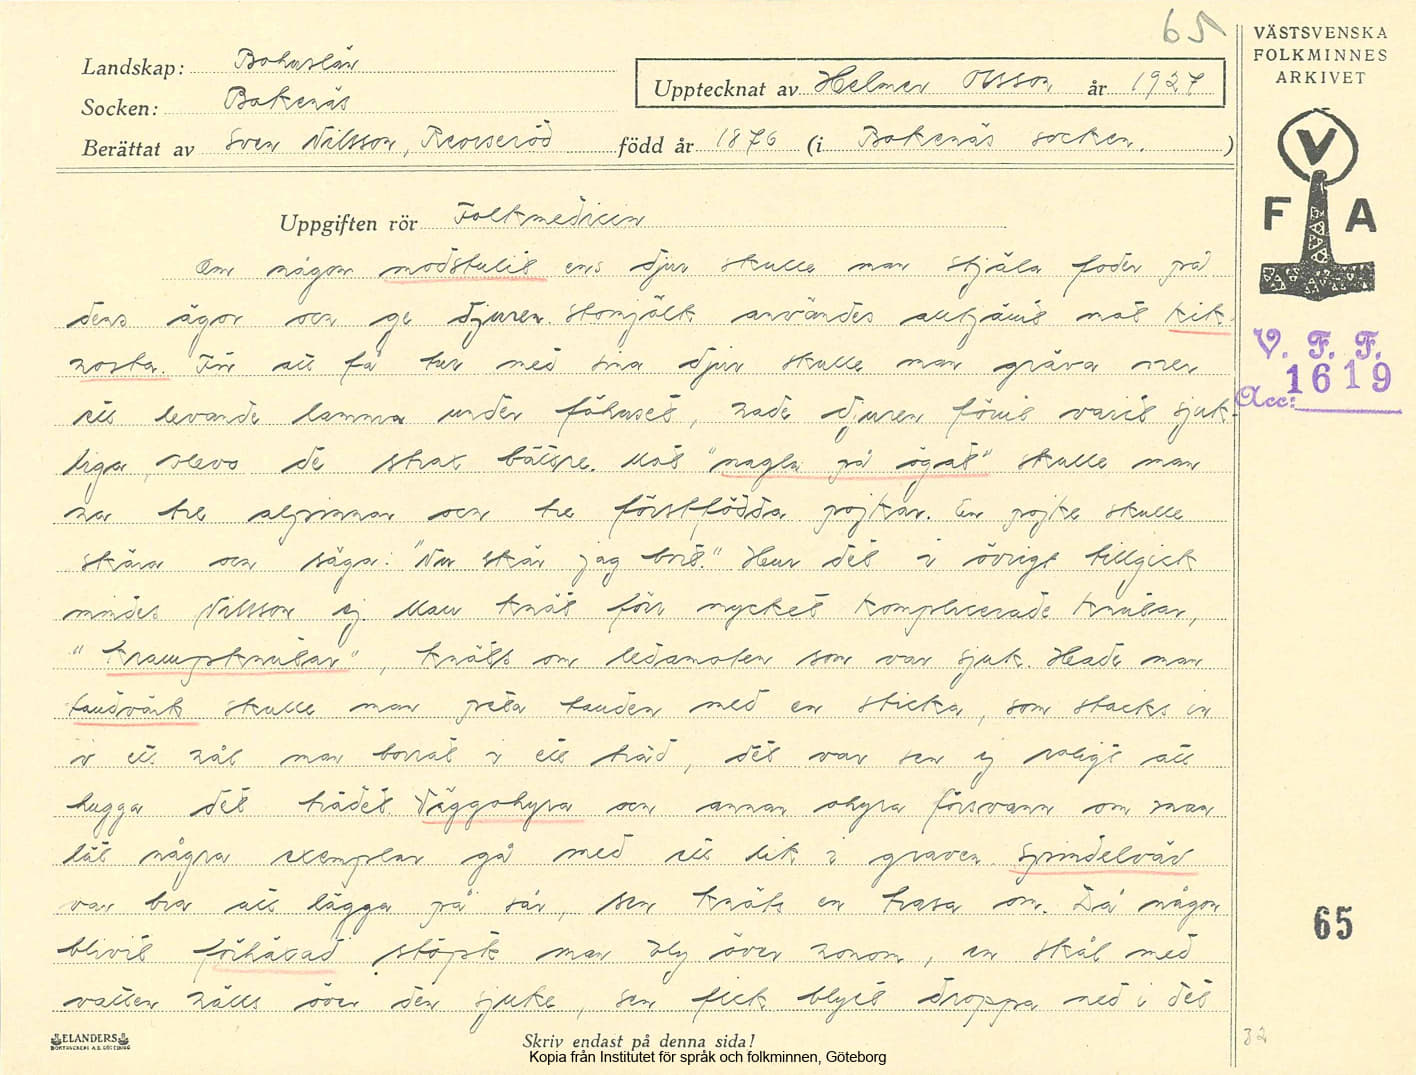 65
VÄSTSVENSKA
FOLKMINNES
ARKIVET
Landskap: Bohuslän
Upptecknat av Helmer Olsson år 1927
Socken: Bokenäs
Berättat av Sven Nilsson, Rorseröd född år 1876 (i Bokenäs socken.)
V
F A
Uppgiften rör Folkmedicin
Om någon modstulit ens djur skulle man stjäla foder på
dens ägor och ge djuren. Stomjölk användes alltjämt mot kik-
hosta. För att få tur med sina djur skulle man gräva ner
ett levande lamm under fähuset, hade djuren förut varit sjuk-
liga, blevo de strax bättre. Mot "nagla på ögat" skulle man
ha tre elpinnar och tre förstfödda pojkar. En pojke skulle
skära och säga: "Nu skär jag bort." Hur det i övrigt tillgick
mindes Nilsson ej. Man knöt förr mycket komplicerade knutar,
"krampknutar", knöts om ledamoten som var sjuk. Hade man
tandvärk skulle man peta tanden med en sticka, som stacks in
i ett hål man borrat i ett träd, det var sen ej roligt att
hugga det trädet. Väggohyra och annan ohyra försvann om man
lät några exemplar gå med ett lik i graven. Spindelväv
var bra att lägga på sår, sen knöts en trasa om. Då någon
blivit förhäxad stöpte man bly över honom, en skål med
vatten hölls över den sjuke, sen fick blyet droppa ned i det
V. F. F.
Acc: 1619
65
32
ELANDERS
BOKTRYCKERI A.B. GÖTEBORG
Skriv endast på denna sida!
Kopia från Institutet för språk och folkminnen, Göteborg